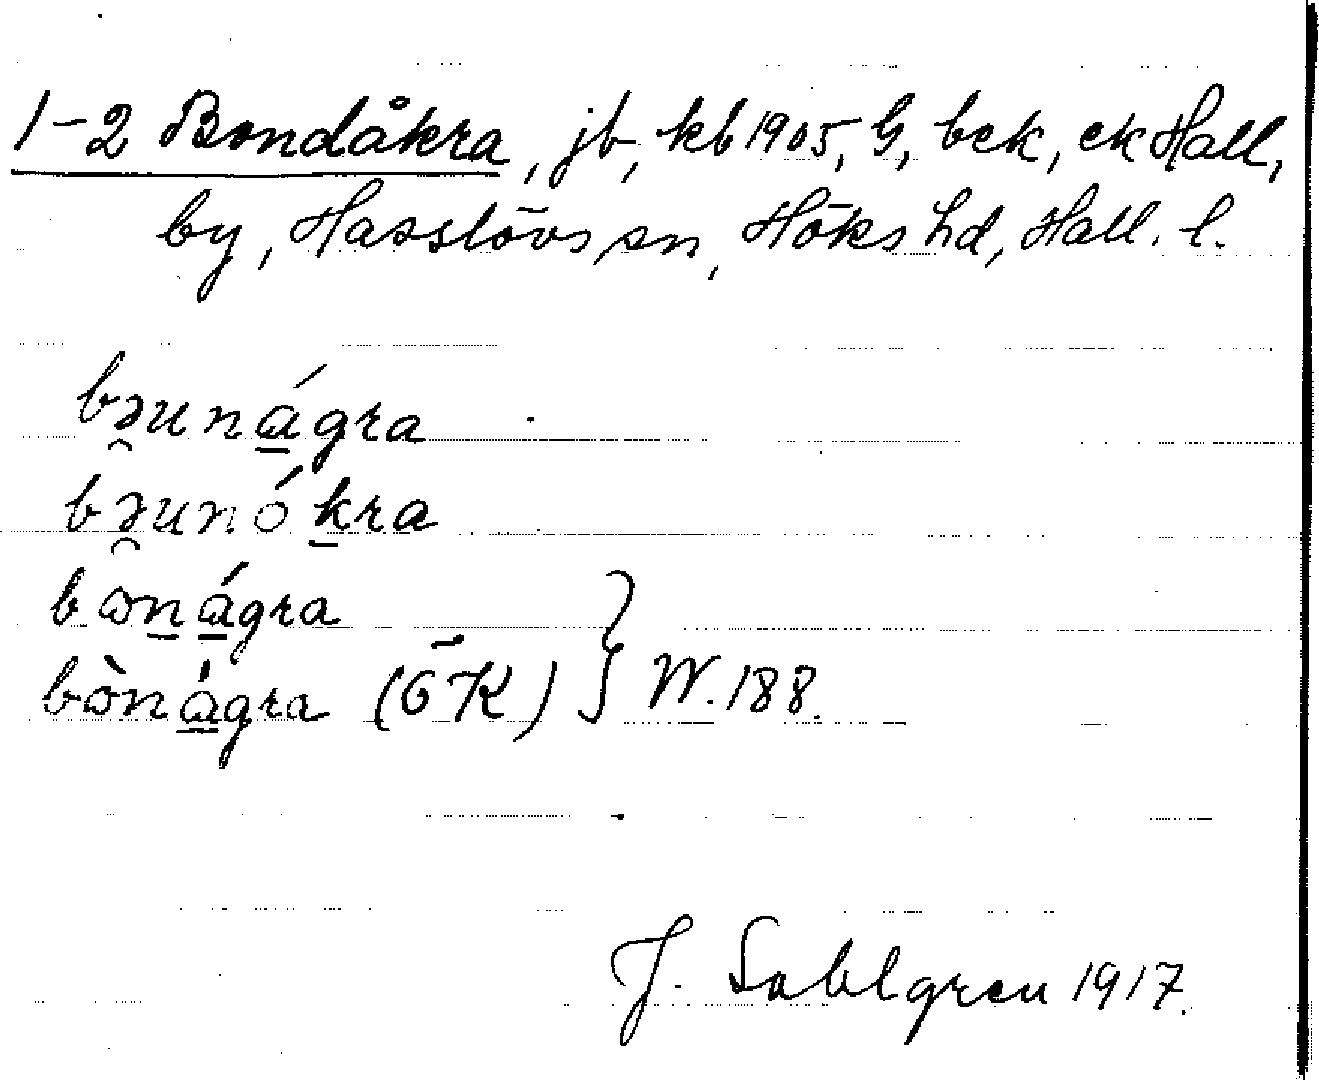 1-2 Bondåkra, jb, kb 1905, G, bck, ck Hall,
by, Hasslövs sn, Höks hd, Hall. l.
bə̯unágra
bə̯unókra
bɷnágra
bɷ̀nágra (ŌK) } W. 188.
J. Sahlgren 1917.